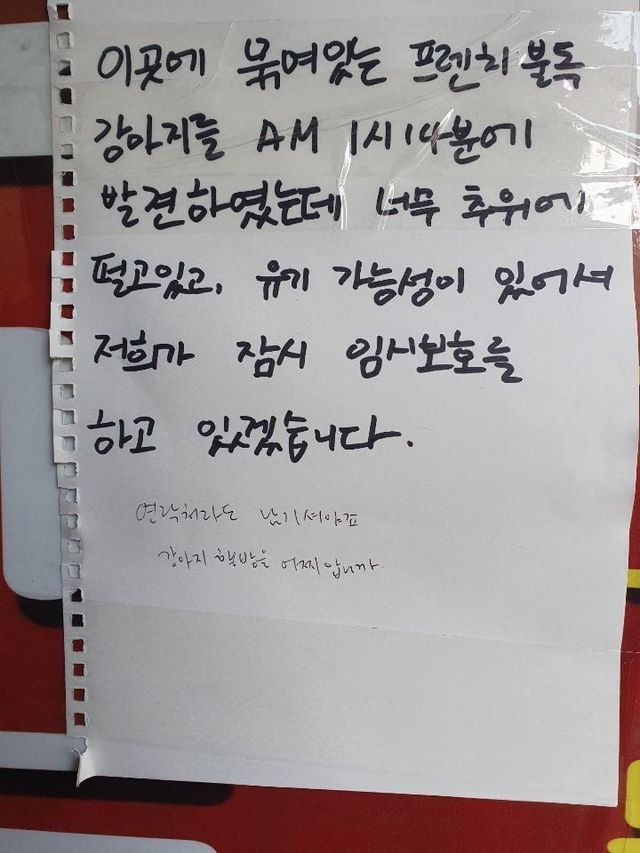 이곳에 묶여있는 프렌치불독
강아지를 AM 1시14분에
발견하였는데 너무 추위에
떨고있고, 유기 가능성이 있어서
저희가 잠시 임시보호를
하고 있겠습니다.
연락처라도 남기셔야죠
강아지 행방을 어찌압니까